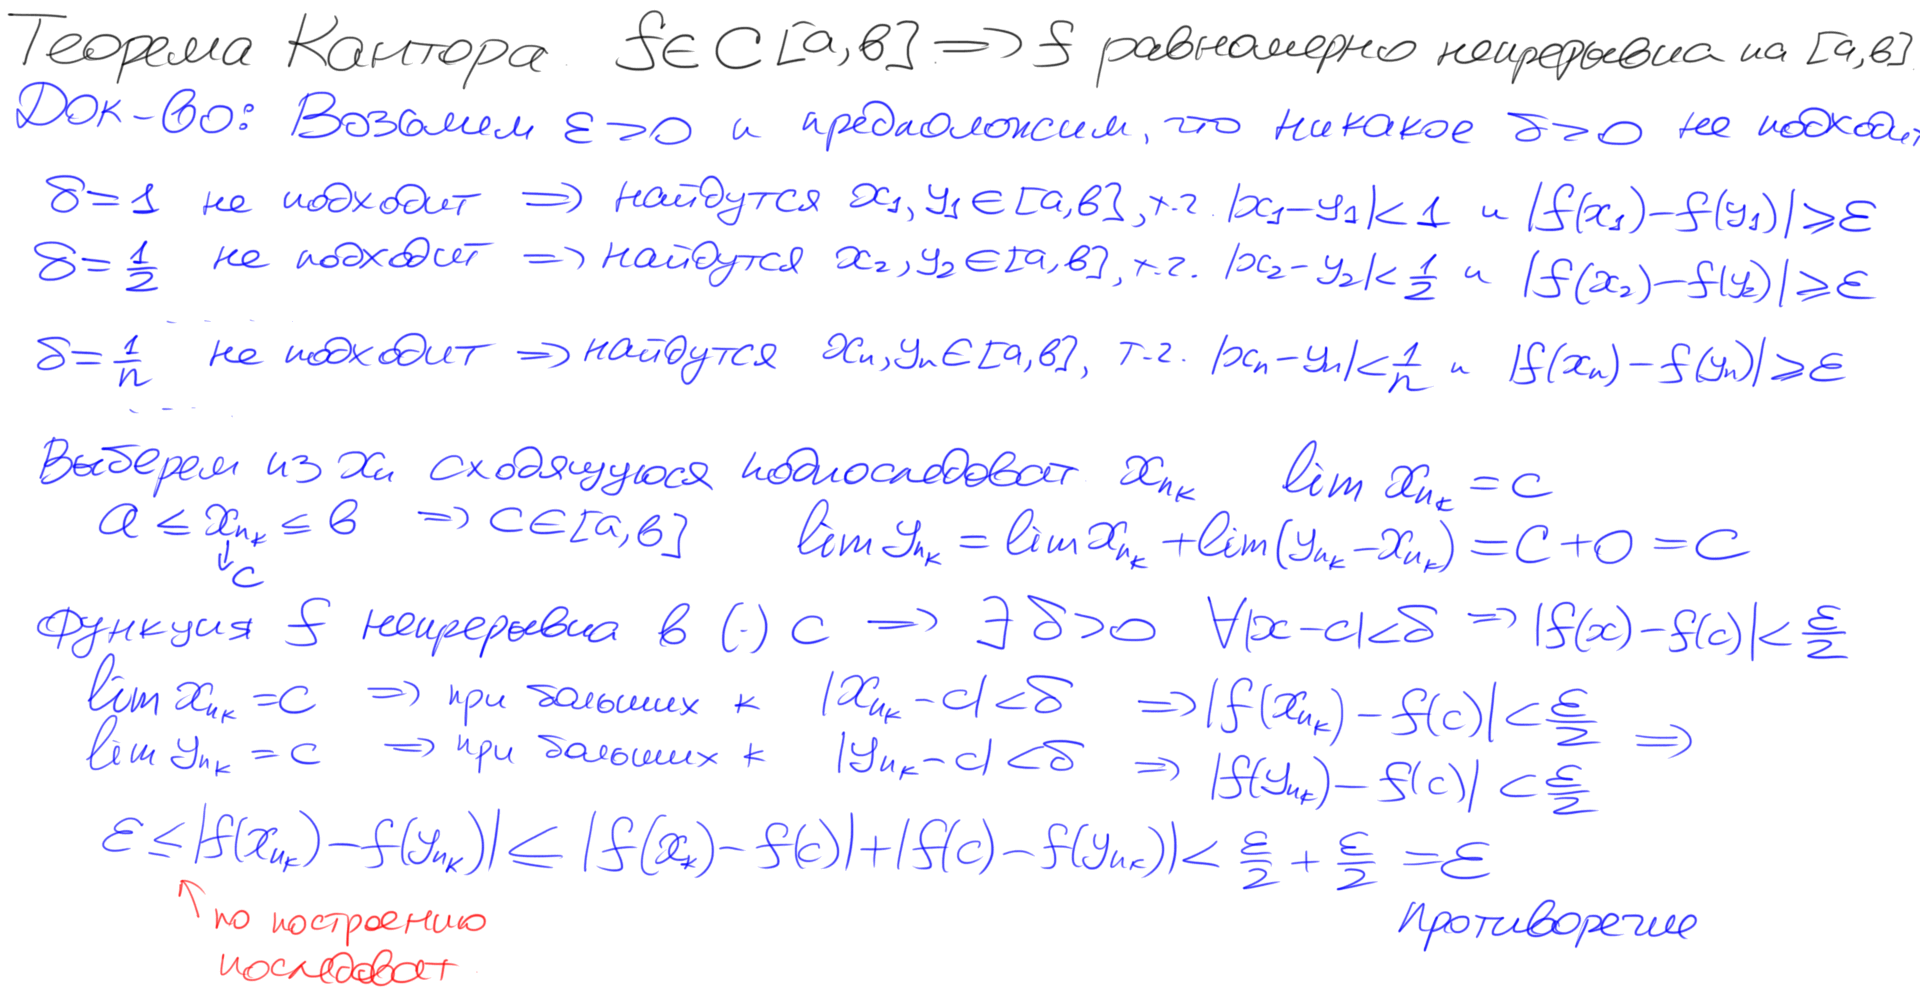 Теорема Кантора f∈C[a,b] => f равномерно непрерывна на [a,b]
Док-во: Возьмем ε>0 и предположим, что никакое δ>0 не подходит
δ=1 не подходит => найдутся x₁,y₁∈[a,b], т.ч. |x₁-y₁|<1 и |f(x₁)-f(y₁)|⩾ε
δ=1/2 не подходит => найдутся x₂,y₂∈[a,b], т.ч. |x₂-y₂|<1/2 и |f(x₂)-f(y₂)|⩾ε
- - -
δ=1/n не подходит => найдутся xₙ,yₙ∈[a,b], т.ч. |xₙ-yₙ|<1/n и |f(xₙ)-f(yₙ)|⩾ε
- - -
Выберем из xₙ сходящуюся подпоследоват x_{n_k} lim x_{n_k} = c
a ≤ x_{n_k} ≤ b => c∈[a,b] lim y_{n_k} = lim x_{n_k} + lim(y_{n_k}-x_{n_k}) = c+0 = c
↓c
Функция f непрерывна в (·) c => ∃ δ>0 ∀|x-c|<δ => |f(x)-f(c)|<ε/2
lim x_{n_k} = c => при больших k |x_{n_k}-c|<δ => |f(x_{n_k})-f(c)|<ε/2 =>
lim y_{n_k} = c => при больших k |y_{n_k}-c|<δ => |f(y_{n_k})-f(c)|<ε/2
ε ≤ |f(x_{n_k})-f(y_{n_k})| ≤ |f(x_k)-f(c)|+|f(c)-f(y_{n_k})| < ε/2 + ε/2 = ε
↖ по построению
последоват
Противоречие